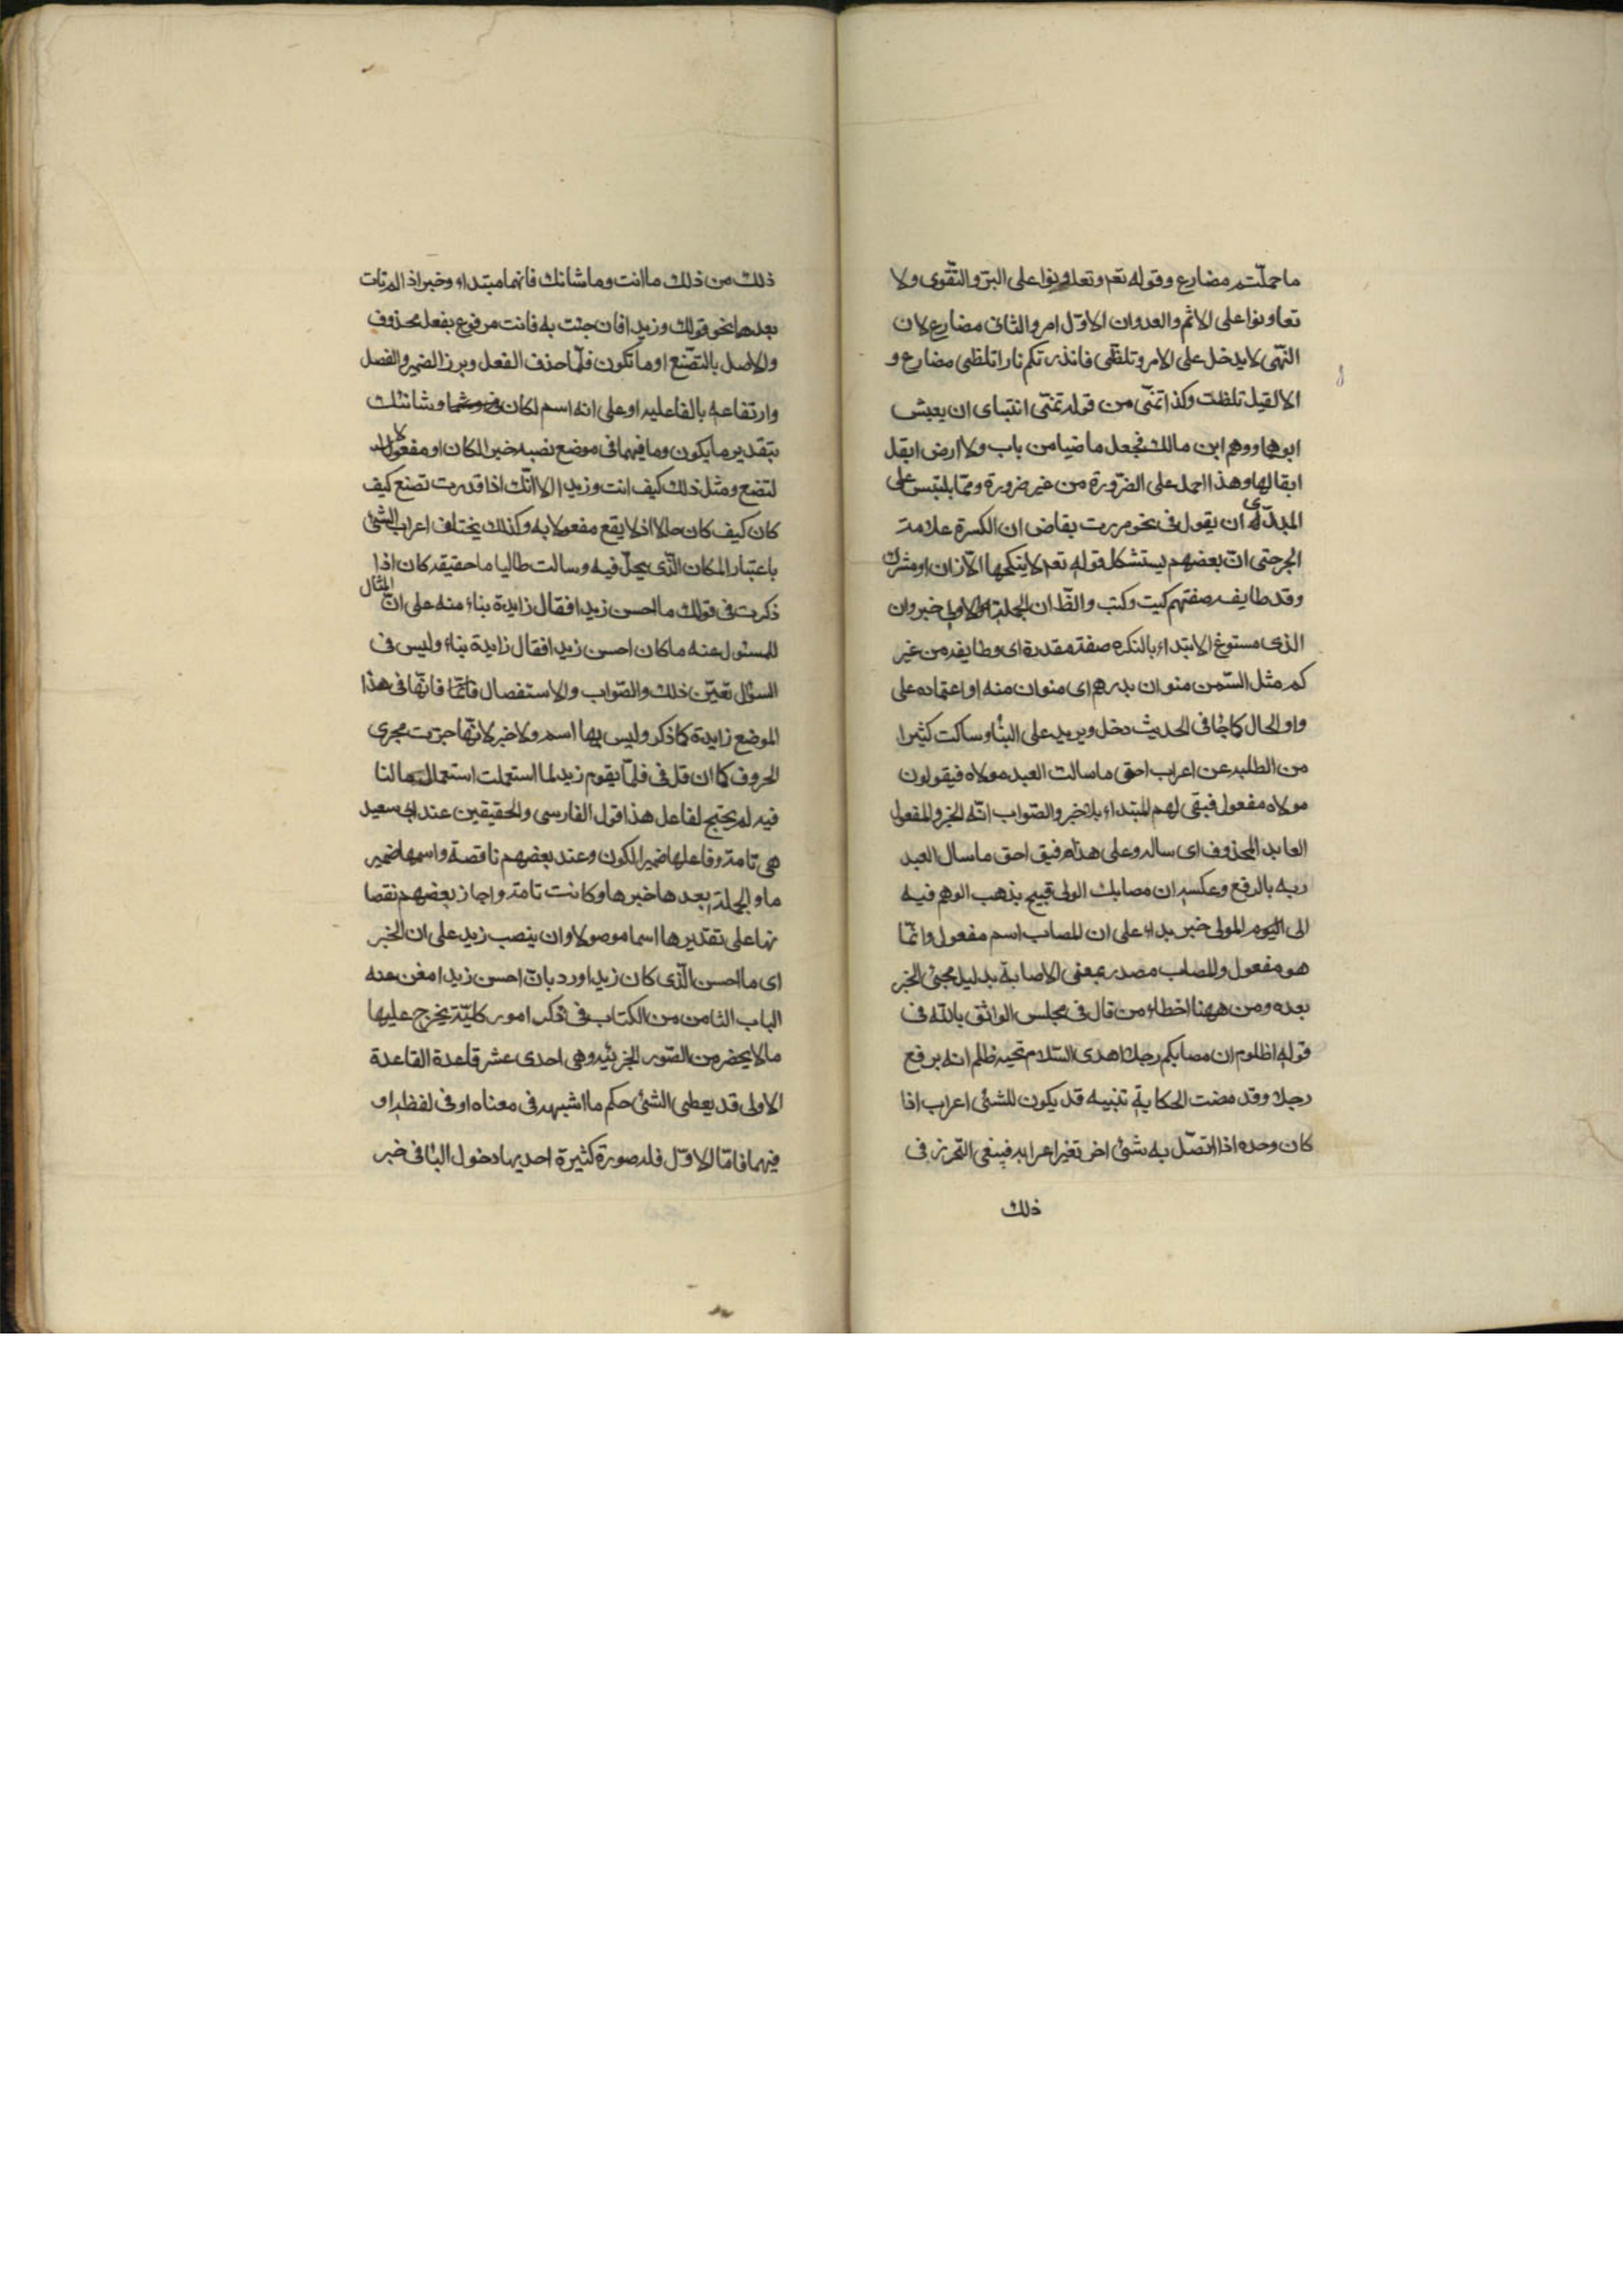 ما حملتم مضارع وقوله تعم وتعاونوا على البر والتقوى ولا
تعاونوا على الاثم والعدوان الاول امر والثانى مضارع لان
النهى لا يدخل على الامر وتلظى فانذرتكم نارا تلظى مضارع و
الا لقيل تلظت وكذا تمنى من قوله تمنى ابنتاى ان يعيش
ابوهما ووهم ابن مالك فجعل ما ضيا من باب ولا ارض ابقل
ابقالها وهذا احمل على الضرورة من غير ضرورة ومما يلتبس على
المبتدى ان يقول فى نحو مررت بقاض ان الكسرة علامة
الجر حتى ان بعضهم يستشكل قوله تعم لا ينكحها الا زان او مشرك
وقد طايفه صفتهم كيت وكيت والظ ان الجملة الاولى خبر وان
الذى مستوغ الابتداء بالنكره صفة مقدرة اى وطايفه من غير
كم مثل السمن منوان بدرهم اى منوان منه او اعتماده على
واو الحال كما جٰا فى الحديث دخل وبريد على النٰار وسالت كثيرا
من الطلبه عن اعراب احق ما سالت العبد مولاه فيقولون
مولاه مفعول فيبقى لهم المبتداء بلا خبر والصواب انه الخبر والمفعول
العايد المحذوف اى ساله وعلى هذا فيق احق ما سال العبد
ربه بالرفع وعكسه ان مصابك المولى قبيح يذهب الوهم فيه
الى المولى خبر بداء على ان المصاب اسم مفعول وانما
هو مفعول والمصاب مصدر بمعنى الاصابة بدليل مجئ الخبر
بعده ومن ههنا اخطاء من قال فى مجلس الواثق بالله فى
قوله اظلوم ان مصابكم رجلا اهدى السلام تحيه ظلم انه برفع
رجلا وقد مضت الحكاية تنبيه قد يكون للشئ اعراب اذا
كان وحده اذا اتصل به شئ اخر تغير اعرابه فينبغى التحرز فى
ذلك
ذلك من ذلك ما انت وما شانك فانهما مبتداء وخبر اذ الم تات
بعدهما نحو قولك وزيدا فان جئت به فانت مرفوع بفعل محذوف
والاصل بالتصنع او ما تكون فلما حذف الفعل وبرز الضمير وانفصل
وارتفاعه بالفاعليه او على انه اسم لكان وشانك
بتقدير ما يكون وما فيهما فى موضع نصبه خبرا لكان او مفعولا
لتضع ومثل ذلك كيف انت وزيدا الا انك اذا قدرت تصنع كيف
كان كيف كان حالا اذ لا يقع مفعولا به وكذلك يختلف اعراب الشئ
باعتبار المكان الذى يحل فيه وسالت طالبا ما حقيقه كان اذا
ذكرت فى قولك ما احسن زيدا فقال زايدة بناء منه على ان المثال
المسئول عنه ما كان احسن زيدا فقال زايدة بناء وليس فى
السؤال تعيين ذلك والصواب والاستفصال فانها فى هذا
الموضع زايدة كما ذكر وليس لها اسم ولا خبر لانها جرت مجرى
الحروف كما ان قل فى قلما يقوم زيد لما استعملت استعمال ما النا
فيه لم يحتج لفاعل هذا قول الفارسى والحقيقين عند ابى سعيد
هى تامة وفاعلها ضمير الكون وعند بعضهم ناقصة واسمها ضمير
ما والجملة بعدها خبرها وكانت تامة واجاز بعضهم نقصا
نها على تقديرها اسما موصولا وان ينصب زيد على ان الخبر
اى ما احسن الذى كان زيدا ورد بان احسن زيدا مغن عنه
الباب الثامن من الكتاب فى ذكر امور كلية يخرج عليها
ما لا يحضر من الصور الجزئيه وهى احدى عشر قاعدة القاعدة
الاولى قد يعطى الشئ حكم ما اشبهه فى معناه او فى لفظه او
فيهما فاما الاول فله صورة كثيرة احديها دخول البٰا فى خبر